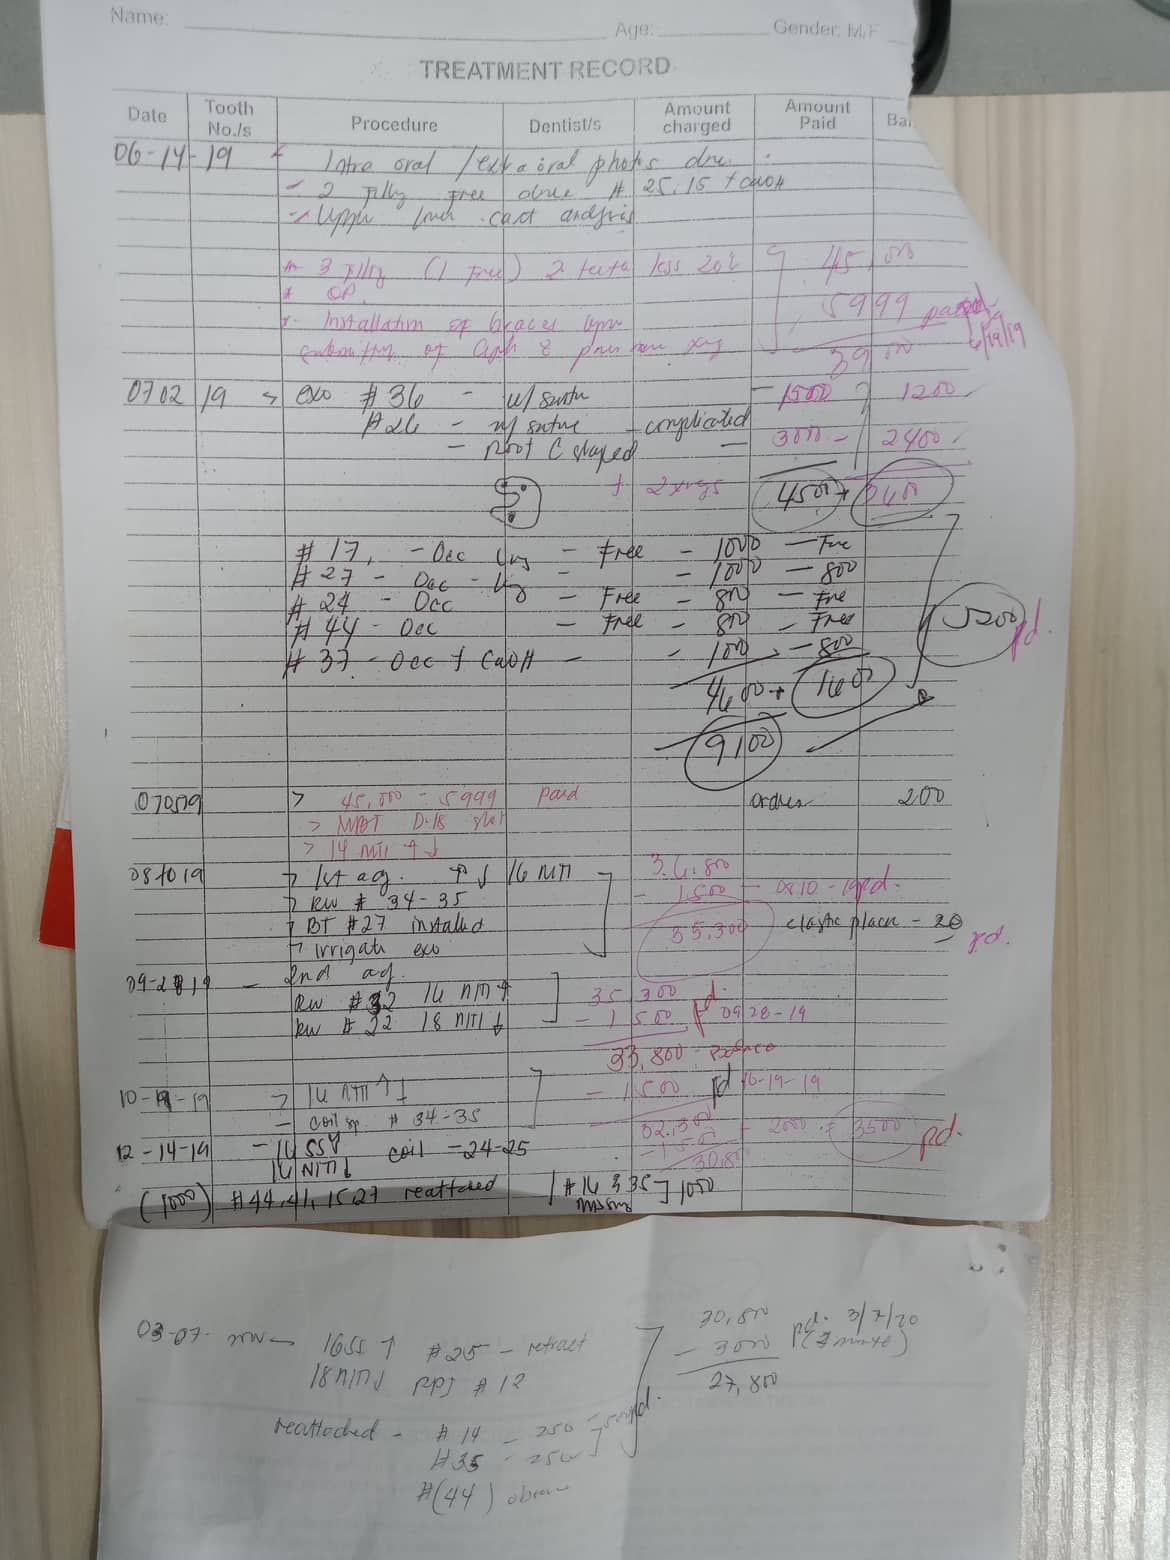 Name: Age: Gender: M/F
TREATMENT RECORD
Date Tooth No./s Procedure Dentist/s Amount charged Amount Paid Bal
06-14-19 Intra oral / extra oral photos done
- 2 Free done # 25, 15 + CaOH
- Upper cast
* 3 (1 Free) 2 teeth less 20% 45,000
* OP. 5999 paid
* Installation of braces upon 6/19/19
of & xray 39,000
0702 19 > exo #36 - w/ suture - 1500 1200
#26 - w/ suture - complicated
- Root C shaped - 3000 - 2400
+ 2 xrays 4500 + 3600
#17, - Occ - Free - 1000 - Free
#27 - Occ - - 1000 - 800
#24 - Occ - Free - 800 - Free
#44 - Occ - Free - 800 - Free
#37 - Occ + CaOH - - 1000 - 800
5200 pd.
4600 + 1600
9100
070519 > 45,000 - 5999 paid 200
> MBT 0.18 slot
> 14 NITI ↑↓
081019 > 1st adj. ↑↓ 16 NITI 36,800
> RW # 34-35 - 1,500 - 0810-19 pd.
> BT #27 installed 35,300 elastic - 20
> Irrigate exo pd.
09-28 19 - 2nd adj.
RW #32 16 NITI ↑ 35,300
RW # 22 18 NITI ↓ - 1,500 pd. 09 28-19
33,800 - Balance
10-19-19 > 16 NITI ↑↓ - 1500 pd 10-19-19
- coil sp. # 34-35 32,300 2000 = 3500 pd.
12-14-19 - 16 SS↑ coil - 24-25 - 1,500
16 NITI↓ 30,800
(1000) #44, 41, 15, 27 reattached #16 & 35 ] 1000
missing
03-07- 16SS ↑ #25 - retract 30,800 pd. 3/7/20
18 NITI↓ RPJ #12 - 3000
27,800
reattached - #14 - 250 - 500 pd.
#35 - 250
#(44)